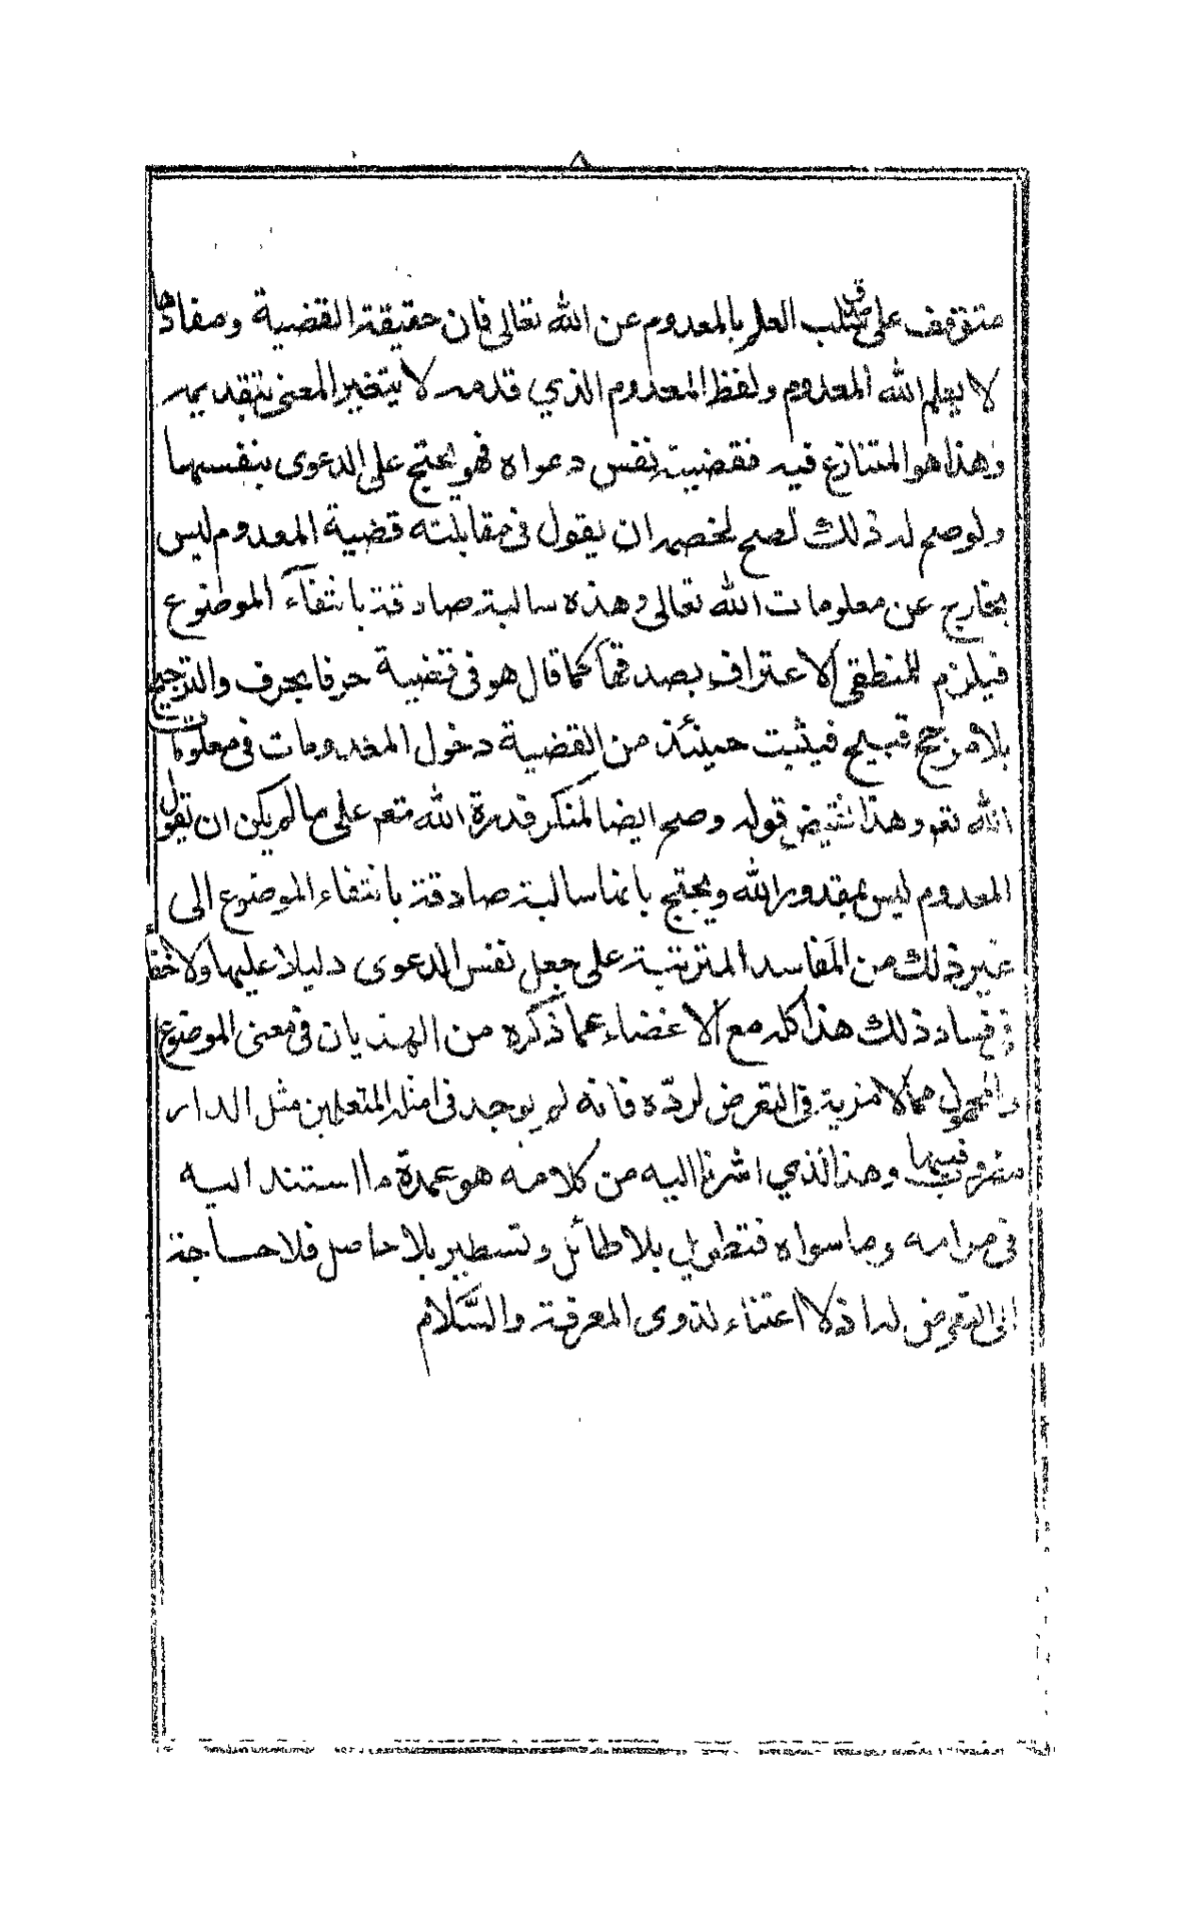 ٨
متوقف على صدق سلب العلم بالمعدوم عن الله تعالى فان حقيقة القضية ومفادها
لا يعلم الله المعدوم ولفظ المعدوم الذي قدمه لا يتغير المعنى بتقديمه
وهذا هو المتنازع فيه فقضيته نفس دعواه فهو يحتج على الدعوى بنفسها
ولو صح له ذلك لصح لخصمه ان يقول في مقابلته قضية المعدوم ليس
بخارج عن معلومات الله تعالى وهذه سالبة صادقة بانتفآء الموضوع
فيلزم للمنطقى الاعتراف بصدقها كما قال هو في قضية حرفا بحرف والترجيح
بلا مرجح قبيح فيثبت حينئذ من القضية دخول المعدومات في معلومات
الله تعم وهذا نقيض قوله وصح ايضا لمنكر قدرة الله تعم على ما لم يكن ان يقول
المعدوم ليس بمقدور الله ويحتج بانها سالبة صادقة بانتفاء الموضوع الى
غير ذلك من المفاسد المترتبة على جعل نفس الدعوى دليلا عليها ولا خفا
في فساد ذلك هذا كله مع الاغضاء عما ذكره من الهذيان في معنى الموضوع
والمحمول مما لا مزية في التعرض لردّه فانه لم يوجد في امثلة المتعلمين مثل الدار
وهذا الذي اشرنا اليه من كلامه هو عمدة ما استند اليه
في مرامه وما سواه فتطويل بلا طائل وتسطير بلا حاصل فلا حاجة
الى التعرض له اذ لا اعتناء لذوى المعرفة والسَّلام